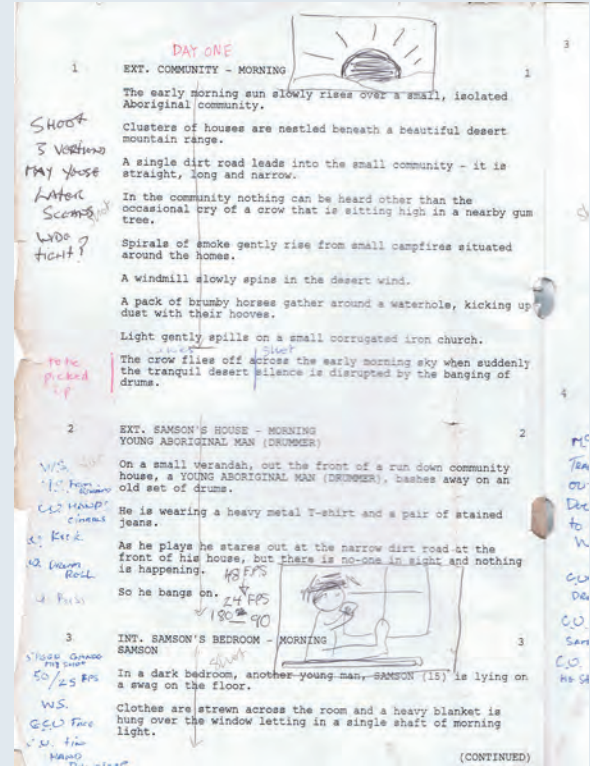 DAY ONE
3
1 EXT. COMMUNITY - MORNING 1
The early morning sun slowly rises over a small, isolated
Aboriginal community.
SHOOT
Clusters of houses are nestled beneath a beautiful desert
mountain range.
3
MAY
A single dirt road leads into the small community - it is
straight, long and narrow.
LATER
In the community nothing can be heard other than the
occasional cry of a crow that is sitting high in a nearby gum
tree.
WIDE
TIGHT?
Spirals of smoke gently rise from small campfires situated
around the homes.
A windmill slowly spins in the desert wind.
A pack of brumby horses gather around a waterhole, kicking up
dust with their hooves.
Light gently spills on a small corrugated iron church.
shot
to be
picked
up
The crow flies off across the early morning sky when suddenly
the tranquil desert silence is disrupted by the banging of
drums.
4
2 EXT. SAMSON'S HOUSE - MORNING 2
YOUNG ABORIGINAL MAN (DRUMMER)
W/S.
On a small verandah, out the front of a run down community
house, a YOUNG ABORIGINAL MAN (DRUMMER), bashes away on an
old set of drums.
HANDS
He is wearing a heavy metal T-shirt and a pair of stained
jeans.
Kick
As he plays he stares out at the narrow dirt road at the
front of his house, but there is no-one in sight and nothing
is happening.
48 FPS
ROLL
So he bangs on.
24 FPS
180 - 90
3 INT. SAMSON'S BEDROOM - MORNING 3
SAMSON
shot
50/25 FPS
In a dark bedroom, another young man, SAMSON (15) is lying on
a swag on the floor.
WS.
Clothes are strewn across the room and a heavy blanket is
hung over the window letting in a single shaft of morning
light.
C.U.
C.U.
HAND
(CONTINUED)